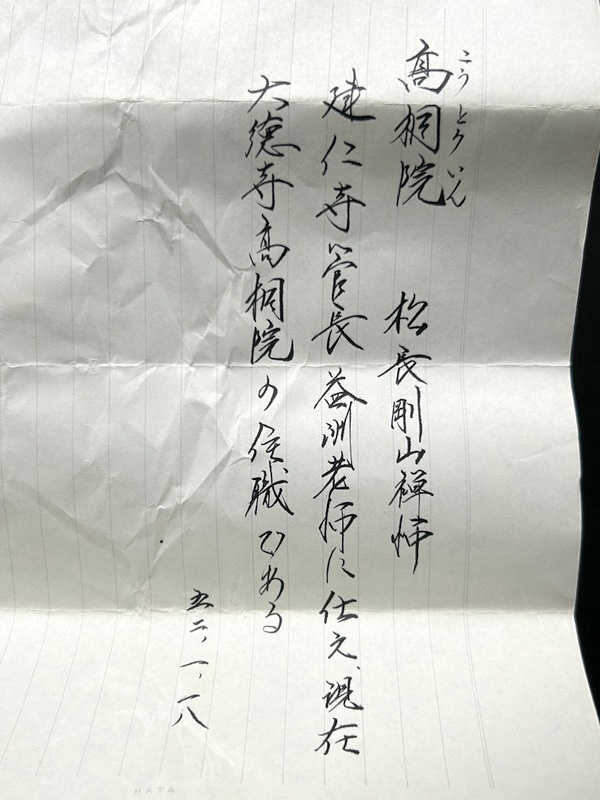 こうとういん
高桐院　松長剛山禅師
建仁寺管長益洲老師に仕え、現在
大徳寺高桐院の住職である
五二、一、一八
HATA